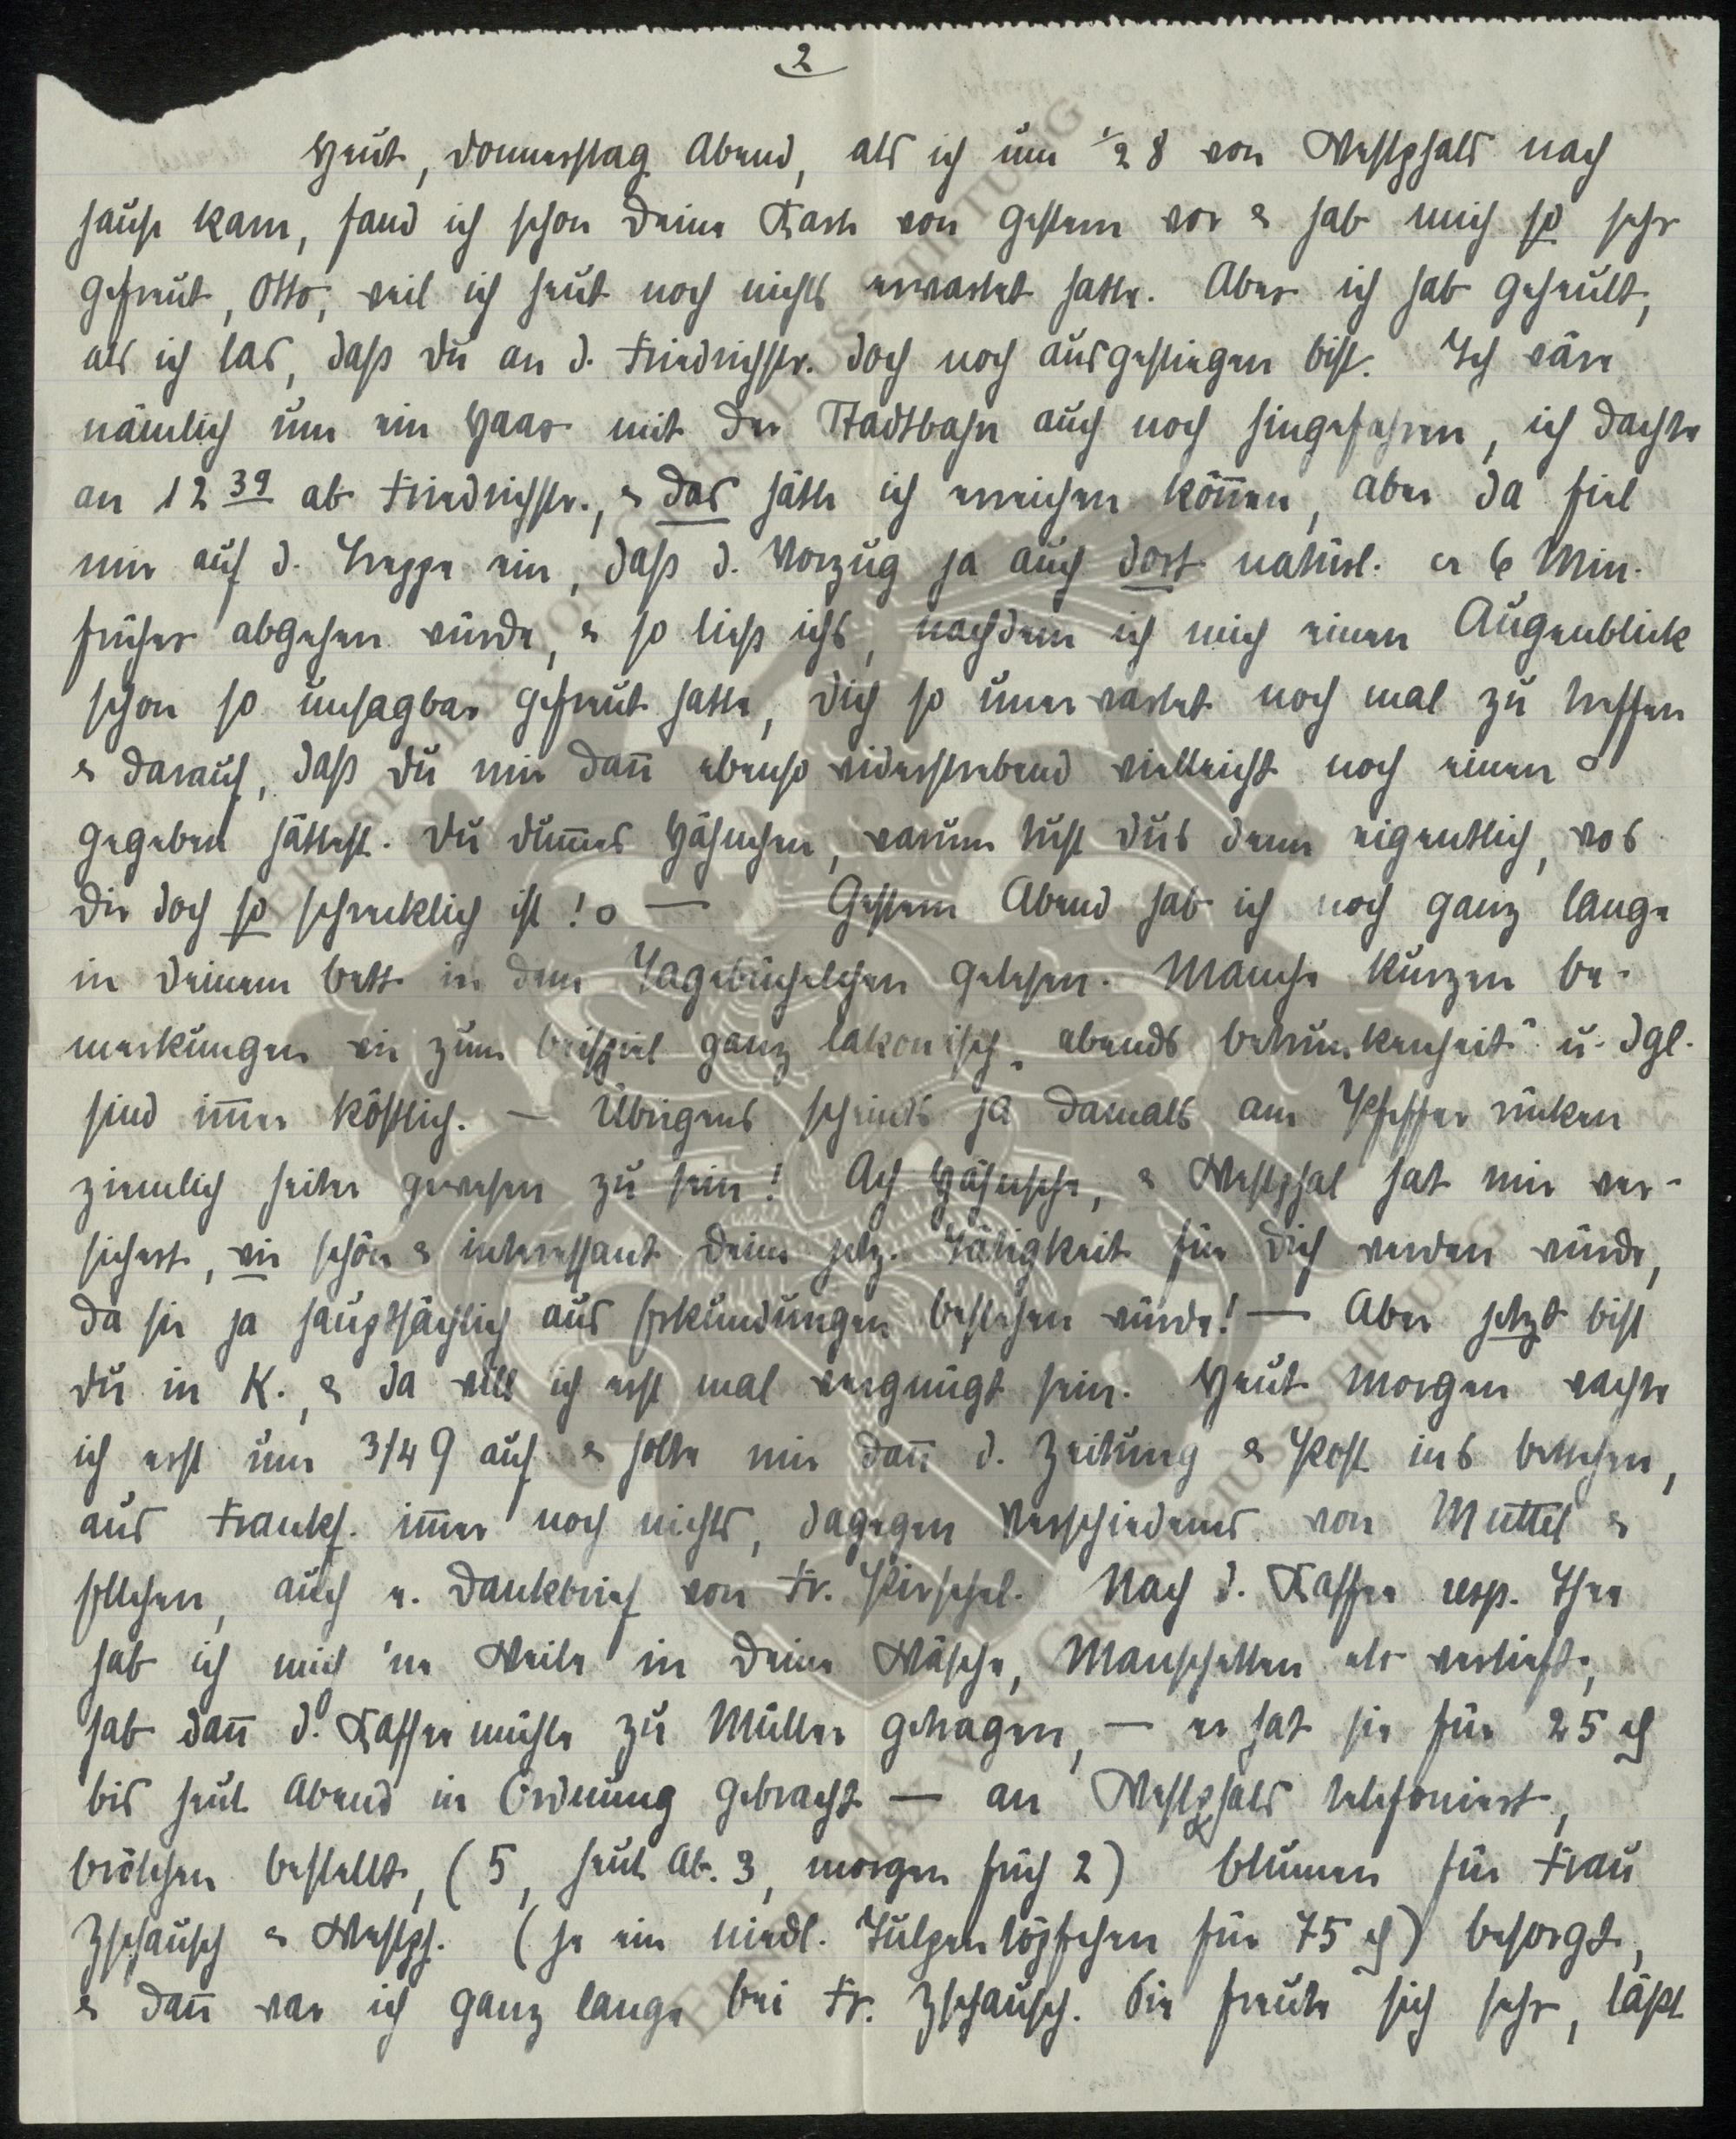 2
Heut, Donnerstag Abend, als ich um ½ 8 von Westphals nach
hause kam, fand ich schon Deine Karte von gestern vor & hab mich so sehr
gefreut, Otto, weil ich heut noch nichts erwartet hatte. Aber ich hab geheult,
als ich las, daß Du an d. Friedrichstr. doch noch ausgestiegen bist. Ich wäre
nämlich um ein Haar mit der Stadtbahn auch noch hingefahren, ich dachte
an 12 39 ab Friedrichstr., & das hätte ich erreichen können, aber da fiel
mir auf d. Treppe ein, daß d. Vorzug ja auch dort natürl. 6 Min.
früher abgehen würde, & so ließ ichs, nachdem ich mich einen Augenblick
schon so unsagbar gefreut hatte, Dich so unerwartet noch mal zu treffen
& darauf, daß Du mir dann ebenso widerstrebend vielleicht noch einen o
gegeben hättest. Du dummes Häschen, warum tust Dus denn eigentlich, wos
Dir doch so schrecklich ist! o — Gestern Abend hab ich noch ganz lange
in Deinem bett in dem Tagebüchelchen gelesen. Manche kurzen be-
merkungen wie zum beispiel ganz lakonisch „abends betrunkenheit“ u. dgl.
sind immer köstlich. — Übrigens scheints ja damals am Pfefferrücken
ziemlich heiter gewesen zu sein! Ach Häsche, & Westphal hat mir ver-
sichert, wie schön & interessant Deine jetz. Tätigkeit für Dich werden würde,
da sie ja hauptsächlich aus Erkundungen bestehen würde! — Aber jetzt bist
Du in K., & da will ich erst mal vergnügt sein. Heut Morgen wachte
ich erst um 3/4 9 auf & holte mir dann d. Zeitung & Post ins bettchen,
aus Frankf. immer noch nichts, dagegen Verschiedenes von Muttel &
Ellchen, auch e. Dankbrief von Fr. Pirschel. Nach d. Kaffee resp. Thee
hab ich mich 'ne Weile in Deine Wäsche, Manschetten etc vertieft,
hab dann d. Kaffeemühle zu Müller getragen, — er hat sie für 25 ₰
bis heut Abend in Ordnung gebracht — an Westphals telefoniert,
brötchen bestellt, (5, heut Ab. 3, morgen früh 2) blumen für Frau
Zschausch & Westph. (je ein niedl. Tulpentöpfchen für 75 ₰) besorgt,
& dann war ich ganz lange bei Fr. Zschausch. Sie freute sich sehr, läßt
ERNST MAX VON GRUNELIUS-STIFTUNG
ERNST MAX VON GRUNELIUS-STIFTUNG